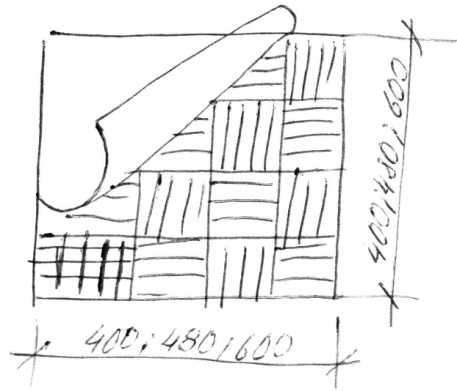 400; 480; 600
400; 480; 600